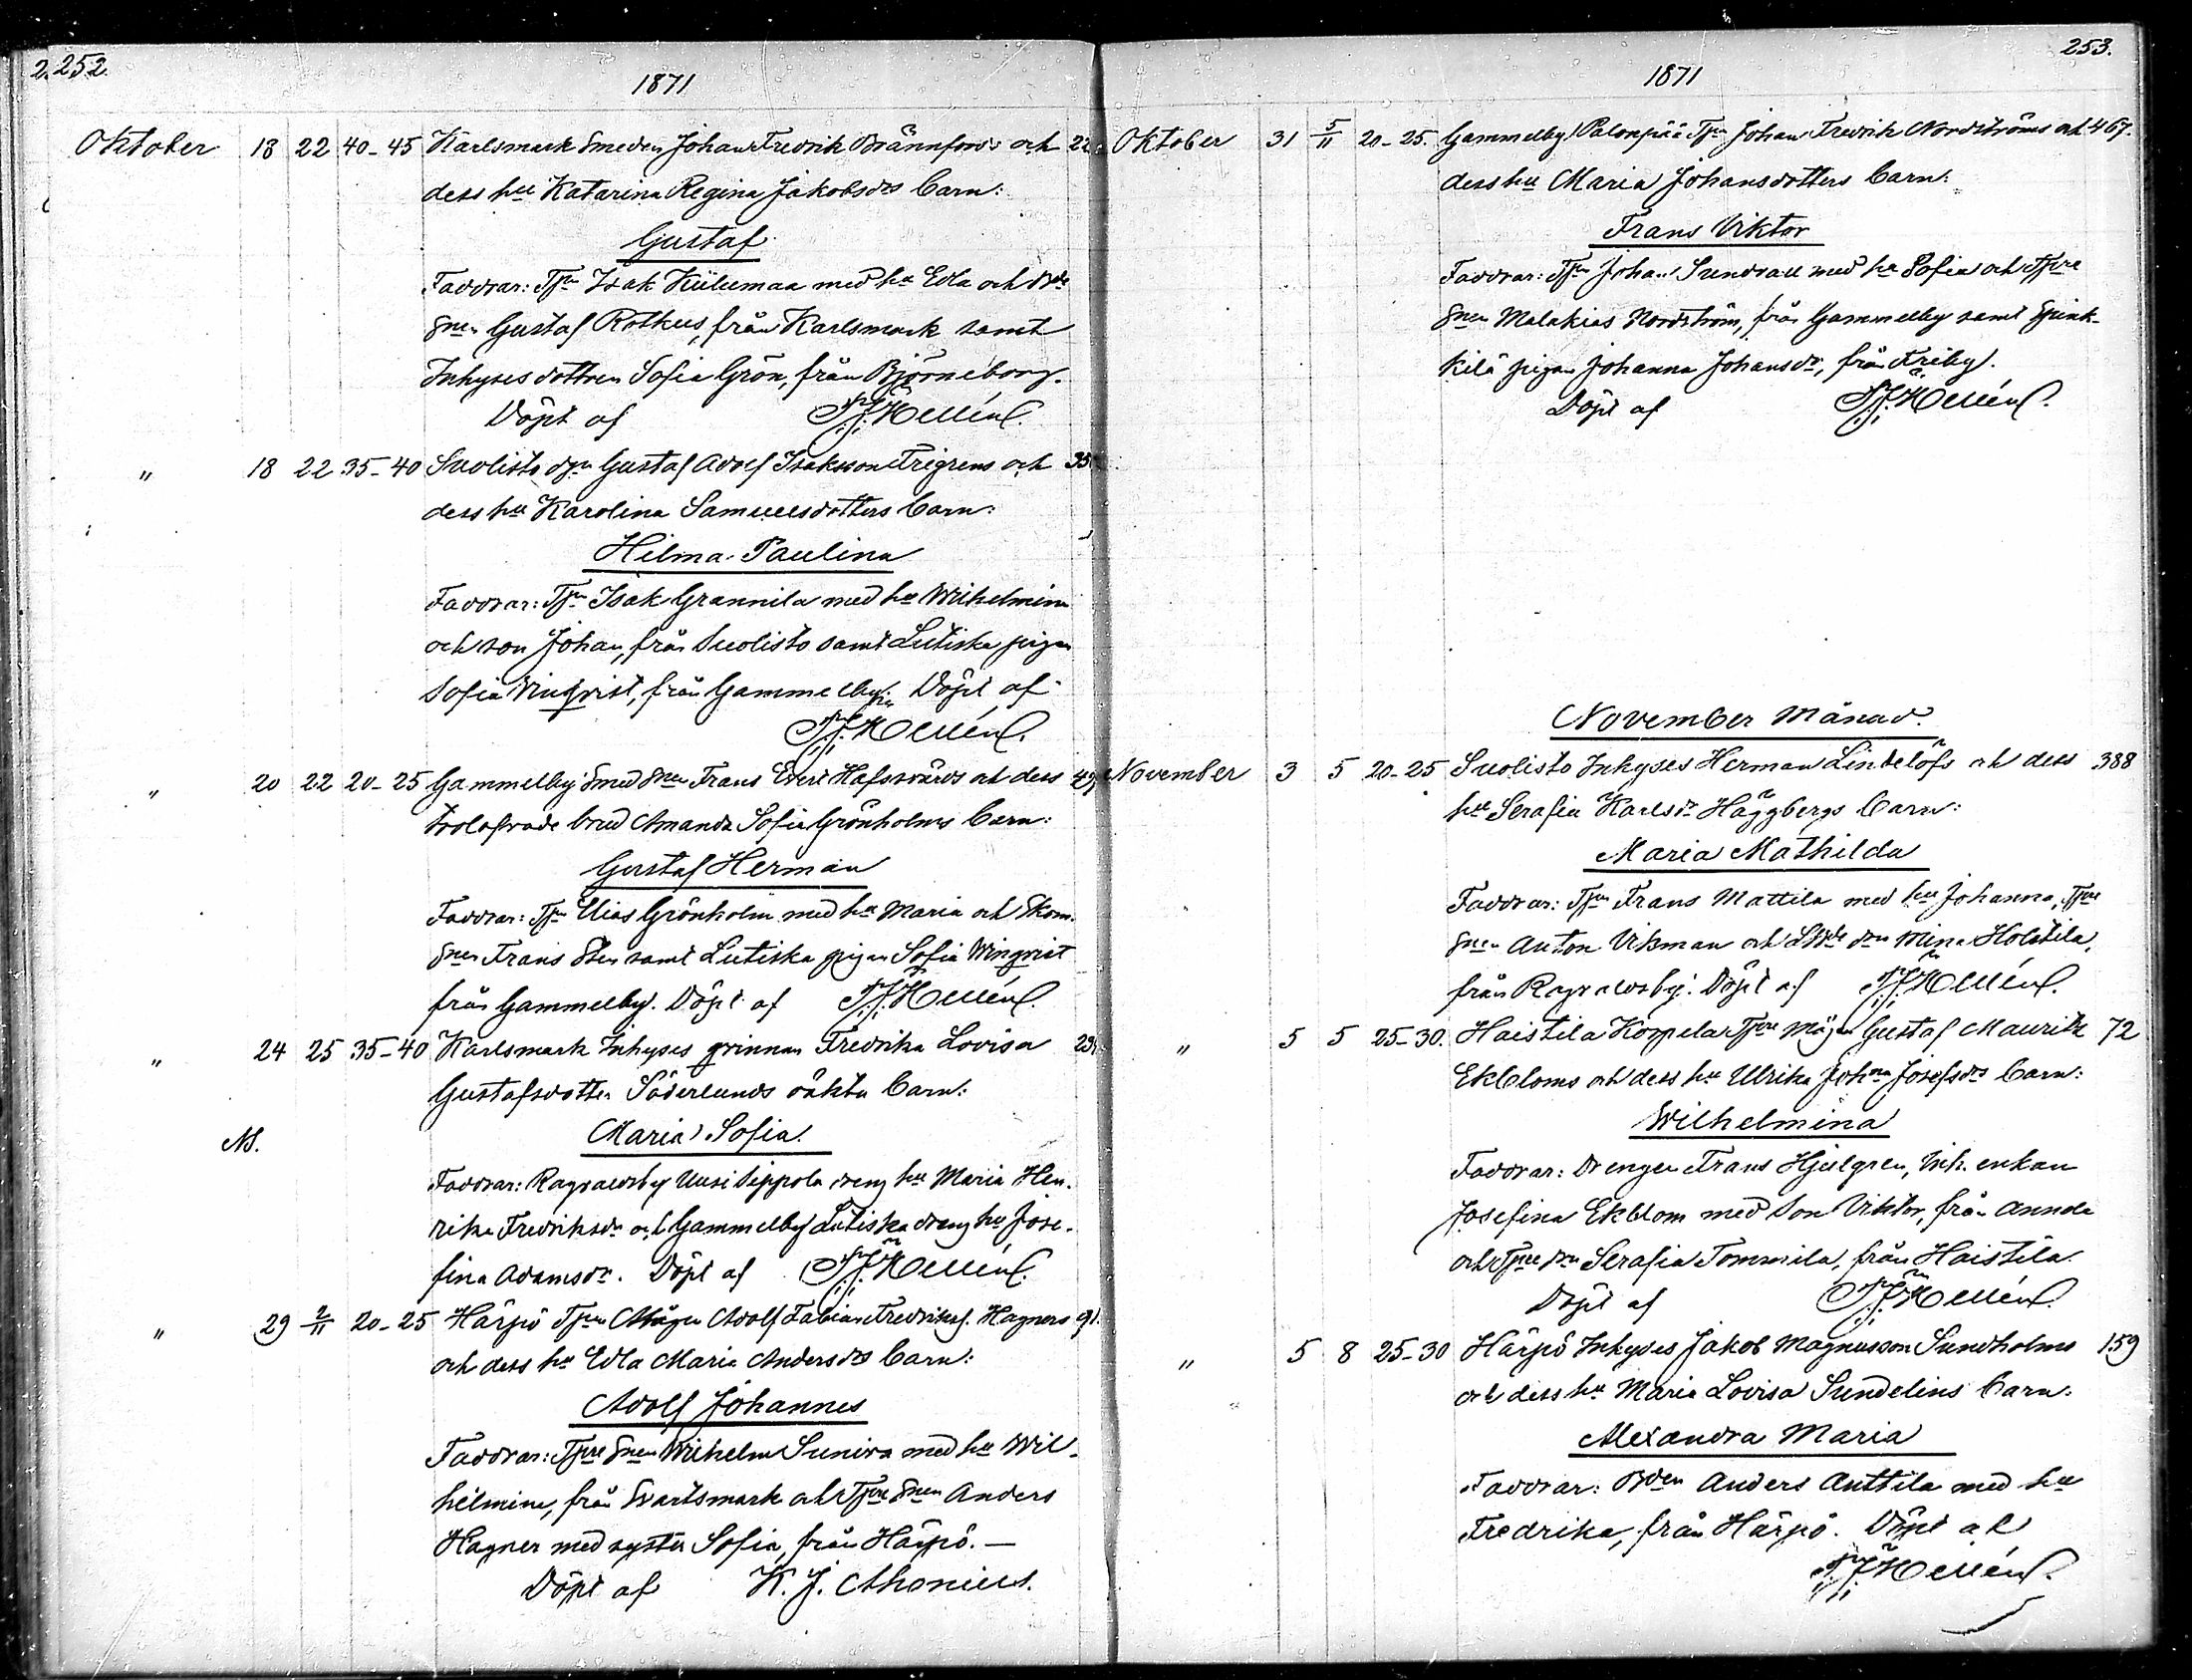 252.
1871
Oktober 18 22 40-45 Karlsmark Smeden Johan Fredrik Brännfors's och
dess hu Katarina Regina Jakobsdrs barn:
Gustaf
Faddrar: Tpn Isak Kiilumaa med hu Edla och
Snen Gustaf Rotkus, från Karlsmark samt
Inhyses dottren Sofia Grön, från Björneborg.
Döpt af J.J. Hellén.
" 18 22 35-40 Suolisto Gustaf Adolf Isaksson Frigrens och
dess hu Karolina Samuelsdotters barn:
Hilma Paulina
Faddrar: Tpn Isak Grannila med hu Wilhelmina
och son Johan, från Suolisto samt Lutiska pigan
Sofia Winqvist, från Gammelby. Döpt af
J.J. Hellén.
" 20 22 20-25 Gammelby Smed Snen Frans Evert Hafssvärds och dess
trolofvade brud Amanda Sofia Grönholms barn:
Gustaf Herman
Faddrar: Tpn Elias Grönholm med hu Maria och Skom.
Snen Frans Sten samt Lutiska pigan Sofia Winqvist
från Gammelby. Döpt af J.J. Hellén.
" 24 25 35-40 Karlsmark Inhyses qvinnan Fredrika Lovisa
Gustafsdotter Söderlunds oäkta barn:
Maria Sofia.
Faddrar: Ragvaldsby Uusi Seppola dreng hu Maria Hen-
rika Fredriksdr och Gammelby Lutiska dreng hu Jose-
fina Adamsdr. Döpt af J.J. Hellén.
" 29 2/11 20-25 Härpö Tpn Mågen Adolf Fabian Fredrikss. Hagners 91.
och dess hu Edla Maria Andersdrs barn:
Adolf Johannes
Faddrar: Tpre Snen Wilhelm Suniva med hu Wil-
helmina, från Svartsmark och Tpre Snen Anders
Hagner med syster Sofia, från Härpö. —
Döpt af K. J. Ahonius.
253.
1871
Oktober 31 5/11 20-25. Gammelby Palonpää Tpn Johan Fredrik Nordströms och 467.
dess hu Maria Johansdotters barn:
Frans Viktor
Faddrar: Tpn Johan Sundvall med hu Sofia och Tpre
Snen Malakias Nordström, från Gammelby samt
kilä pigan Johanna Johansdr, från Friby.
Döpt af J.J. Hellén.
November Månad.
November 3 5 20-25 Suolisto Inhyses Herman Lindelöfs och dess 388
hu Serafia Karlsdr Häggbergs barn:
Maria Mathilda
Faddrar: Tpn Frans Mattila med hu Johanna, Tpre
Snen Anton Vikman och dren Mina Holstila,
från Ragvaldsby. Döpt af J.J. Hellén.
" 5 5 25-30. Haistila Korpela Tpre Mågen Gustaf Mauritz 72
Ekbloms och dess hu Ulrika Johna Josefsdrs barn:
Wilhelmina
Faddrar: Drengen Frans Hjulgren, Inh. enkan
Josefina Ekblom med Son Viktor, från Annola
och Tpre dren Serafia Tommila, från Haistila.
Döpt af J.J. Hellén.
" 5 8 25-30 Härpö Inhyses Jakob Magnusson Sundholms 159
och dess hu Maria Lovisa Sundelins barn:
Alexandra Maria
Faddrar: Bden Anders Anttila med hu
Fredrika, från Härpö. Döpt af
J.J. Hellén.